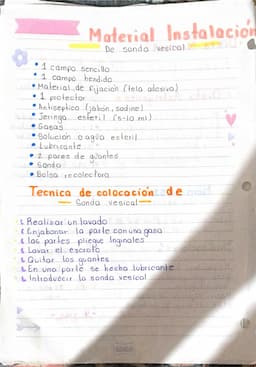 Material Instalación
De sonda vesical
• 1 campo sencillo
• 1 campo hendido
• Material de fijación (tela adesiva)
• 1 protector
• Antiseptico (jabón, sodine)
• Jeringa esteril (5-10 ml)
• Gasas
• Solución o agua esteril
• Lubricante
• 2 pares de guantes
• Sonda
• Bolsa recolectora
Tecnica de colocación de
Sonda vesical
Realizar un lavado
Enjabonar la parte con una gasa
las partes pliegue Inginales
Lavar el escroto
Quitar los guantes
En una parte se hecha lubricante
Introducir la sonda vesical